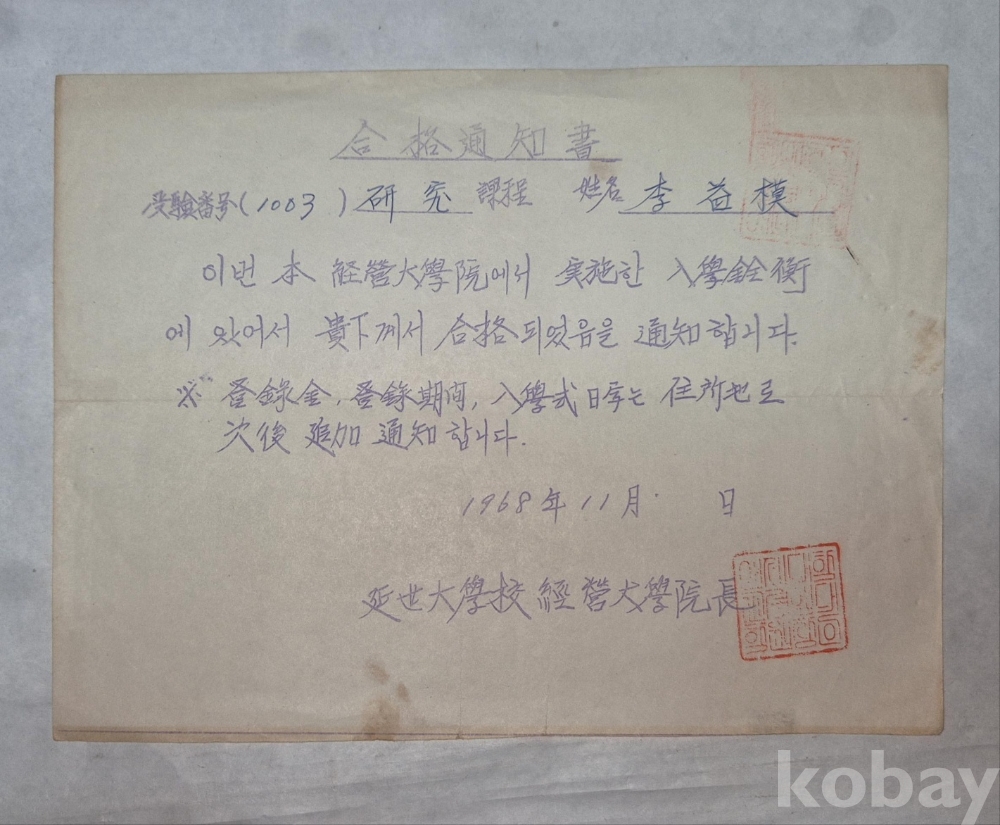 合格通知書
受驗番号(1003)研究 課程 姓名 李益模
이번 本 経営大學院에서 実施한 入學銓衡
에 있어서 貴下께서 合格되었음을 通知합니다.
※ 登錄金, 登錄期间, 入學式 日字는 住所地로
次後 追加 通知합니다.
1968年 11月 日
延世大學校 経営大學院長
kobay